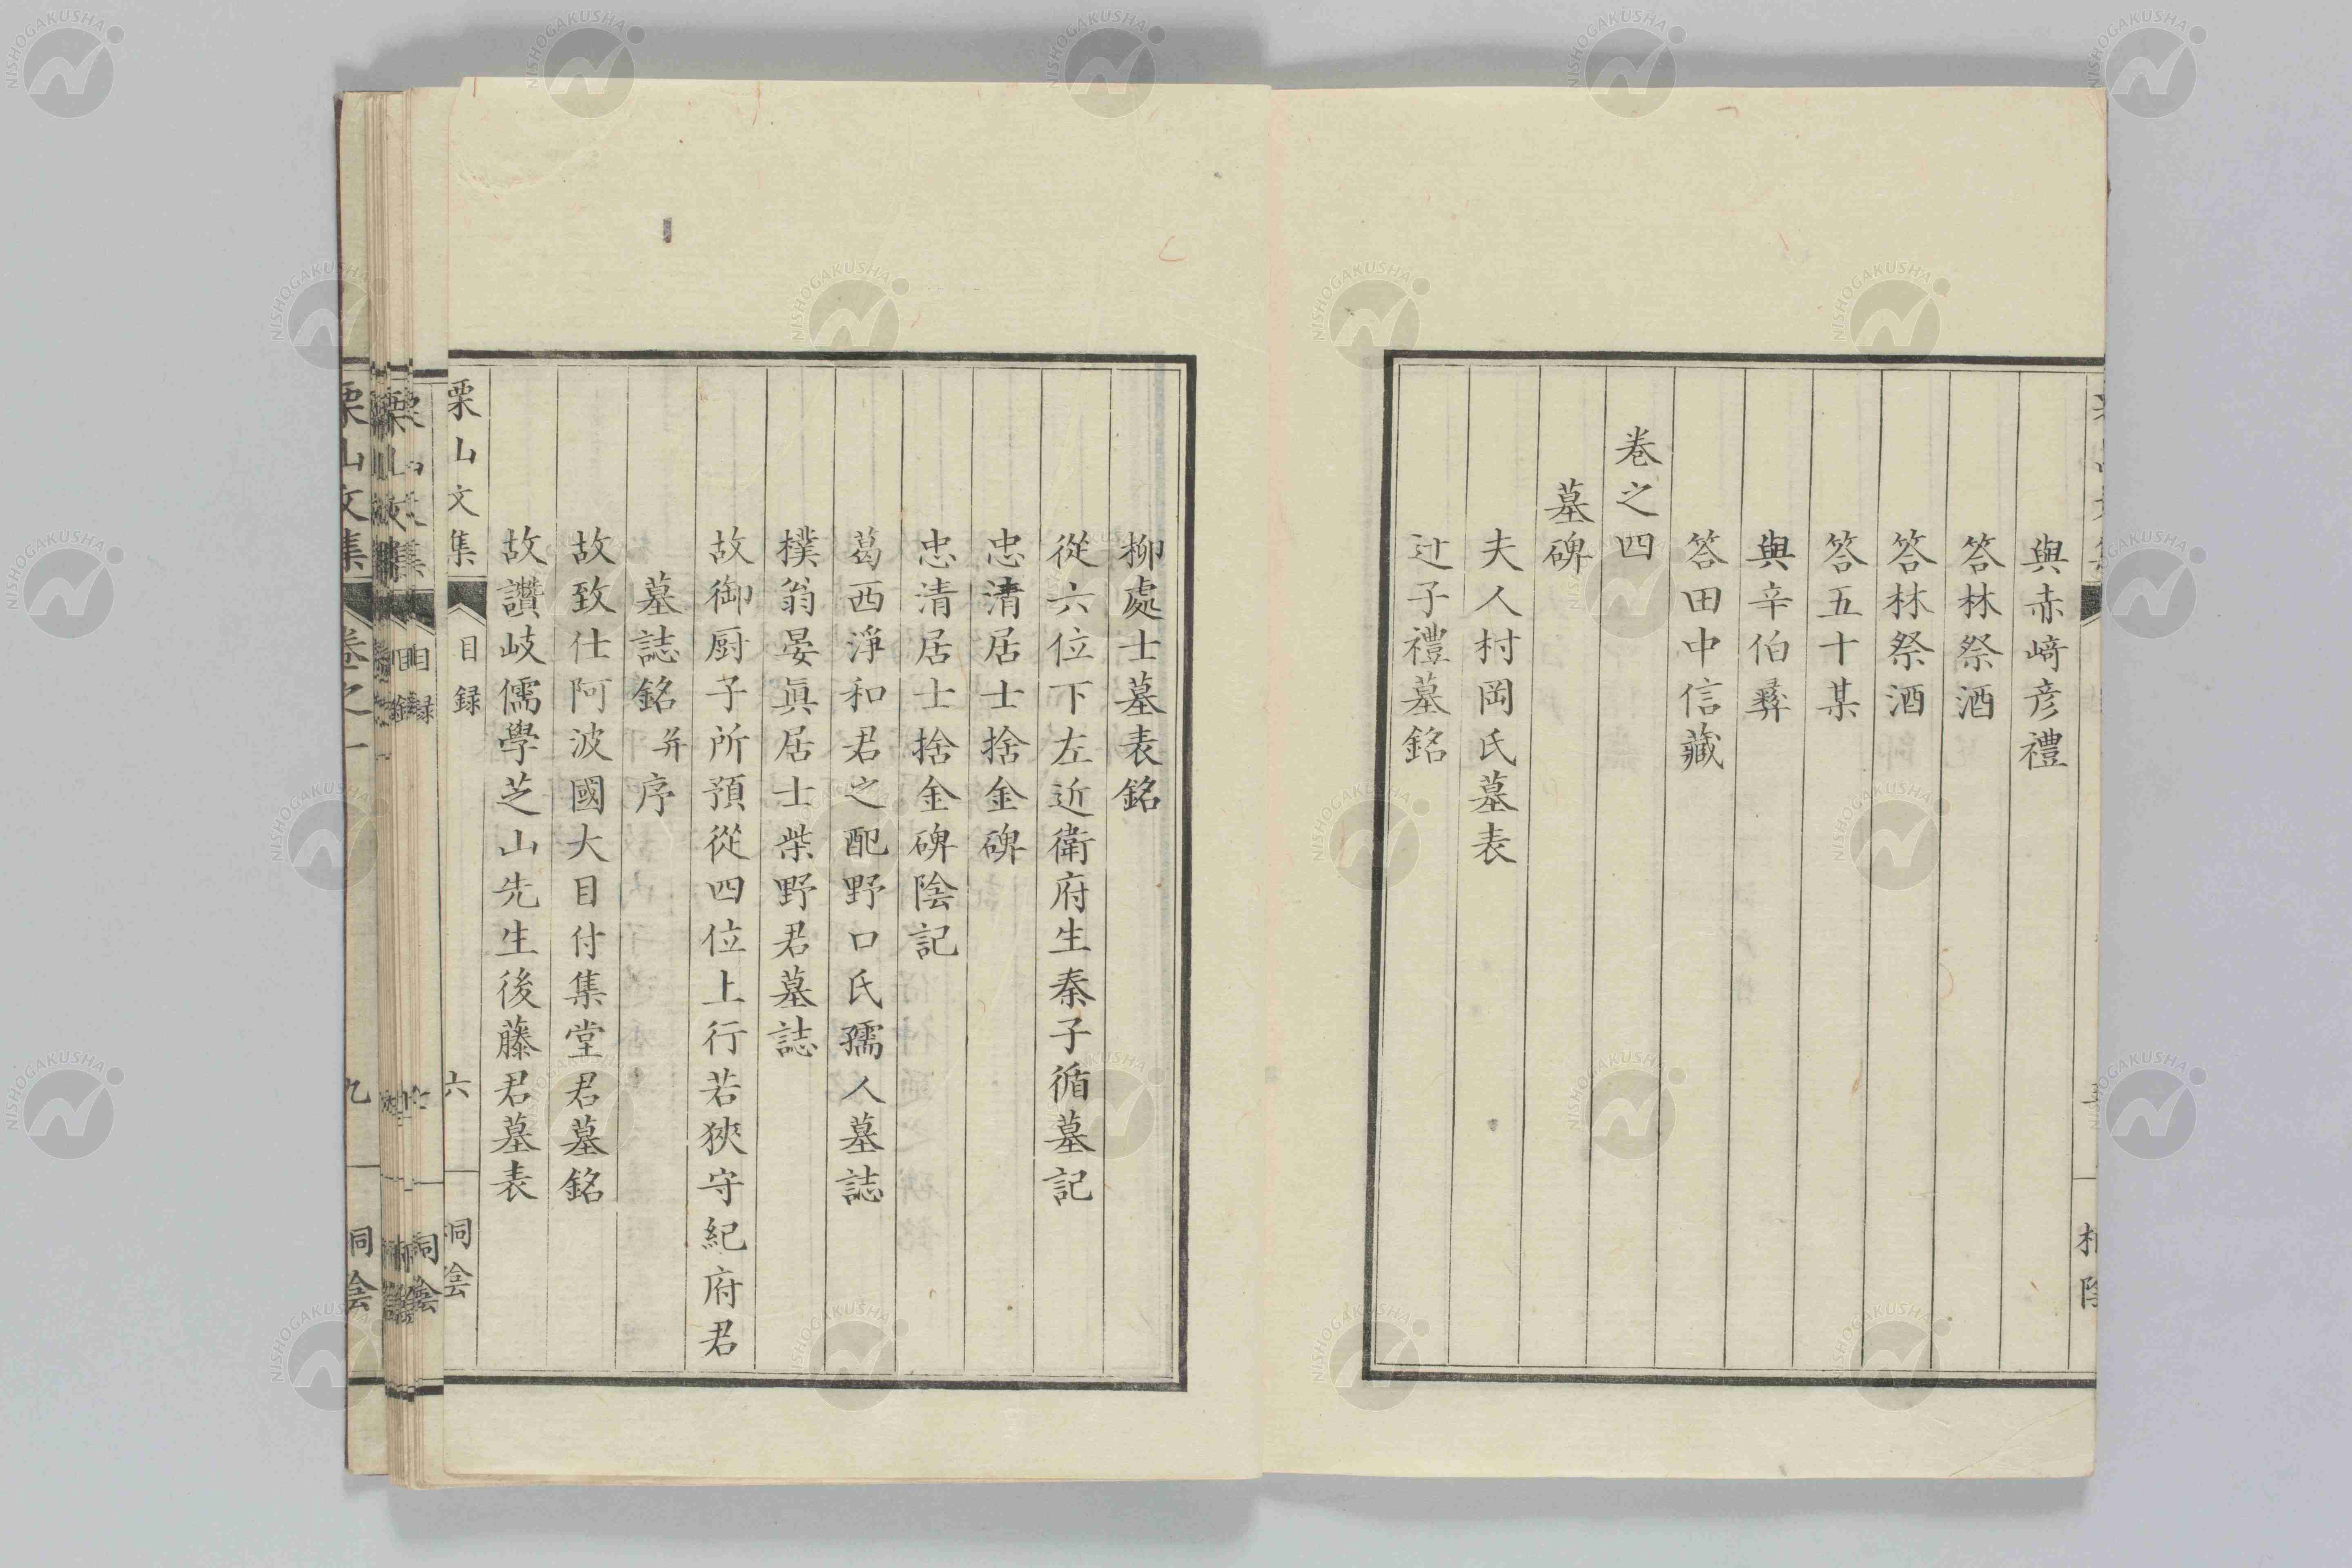 與赤﨑彦禮
答林祭酒
答林祭酒
答五十某
與辛伯彜
答田中信藏
卷之四
墓碑
夫人村岡氏墓表
辻子禮墓銘
柳處士墓表銘
從六位下左近衛府生秦子循墓記
忠清居士捨金碑
忠清居士捨金碑陰記
葛西淨和君之配野口氏孺人墓誌
樸翁晏眞居士柴野君墓誌
故御厨子所預從四位上行若狹守紀府君
墓誌銘并序
故致仕阿波國大目付集堂君墓銘
故讚岐儒學芝山先生後藤君墓表
栗山文集 目録 六 桐陰
栗山文集 卷之一 九 桐陰
NISHOGAKUSHA